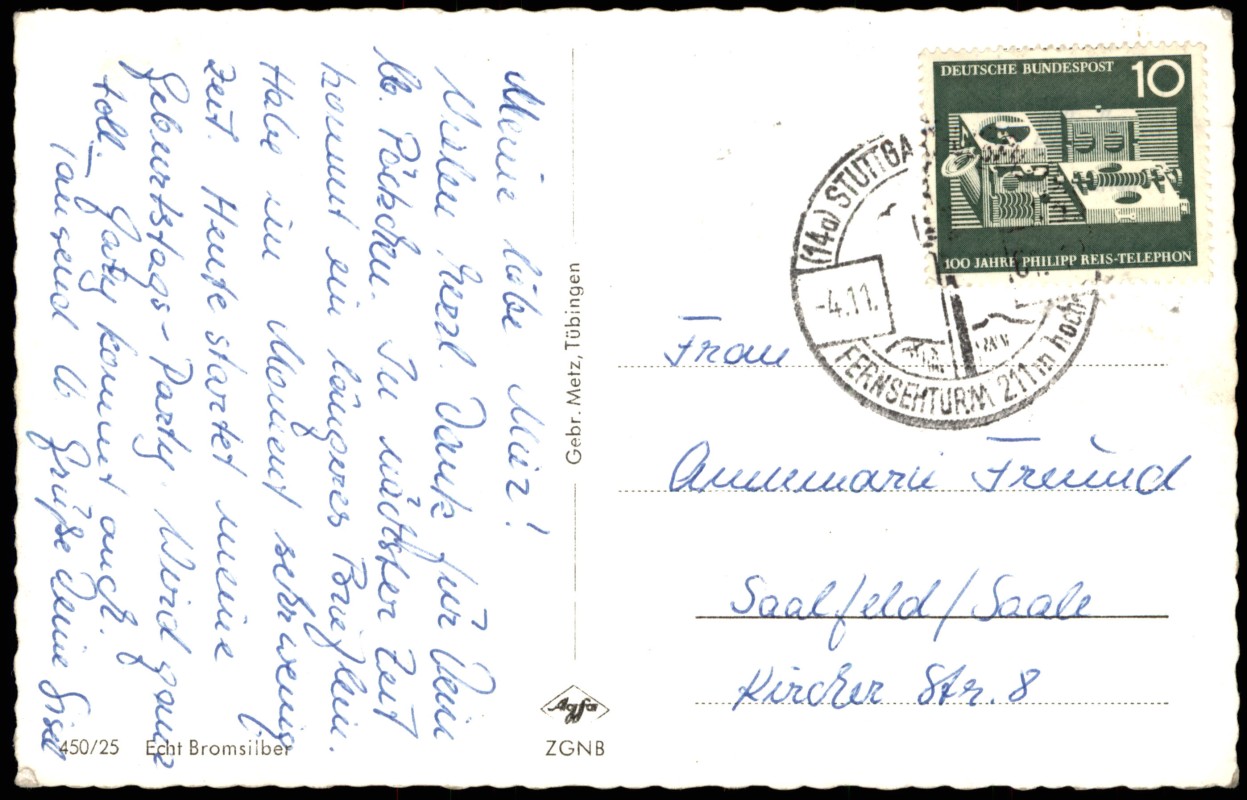 Meine liebe Mia!
Vielen herzl. Dank für Dein
lb. Päckchen. In nächster Zeit
kommt ein längeres Brieflein.
Habe im Moment sehr wenig
Zeit. Heute startet meine
Geburtstags-Party. Wird ganz
toll. Gatzy kommt auch.
Tausend lb Grüße Deine Gisel
450/25 Echt Bromsilber
Gebr. Metz, Tübingen
Agfa
ZGNB
DEUTSCHE BUNDESPOST 10
100 JAHRE PHILIPP REIS-TELEPHON
(14a) STUTTGA
-4.11.
FERNSEHTURM 211m hoch
Frau
Annemarie Freund
Saalfeld/Saale
Kircher Str. 8